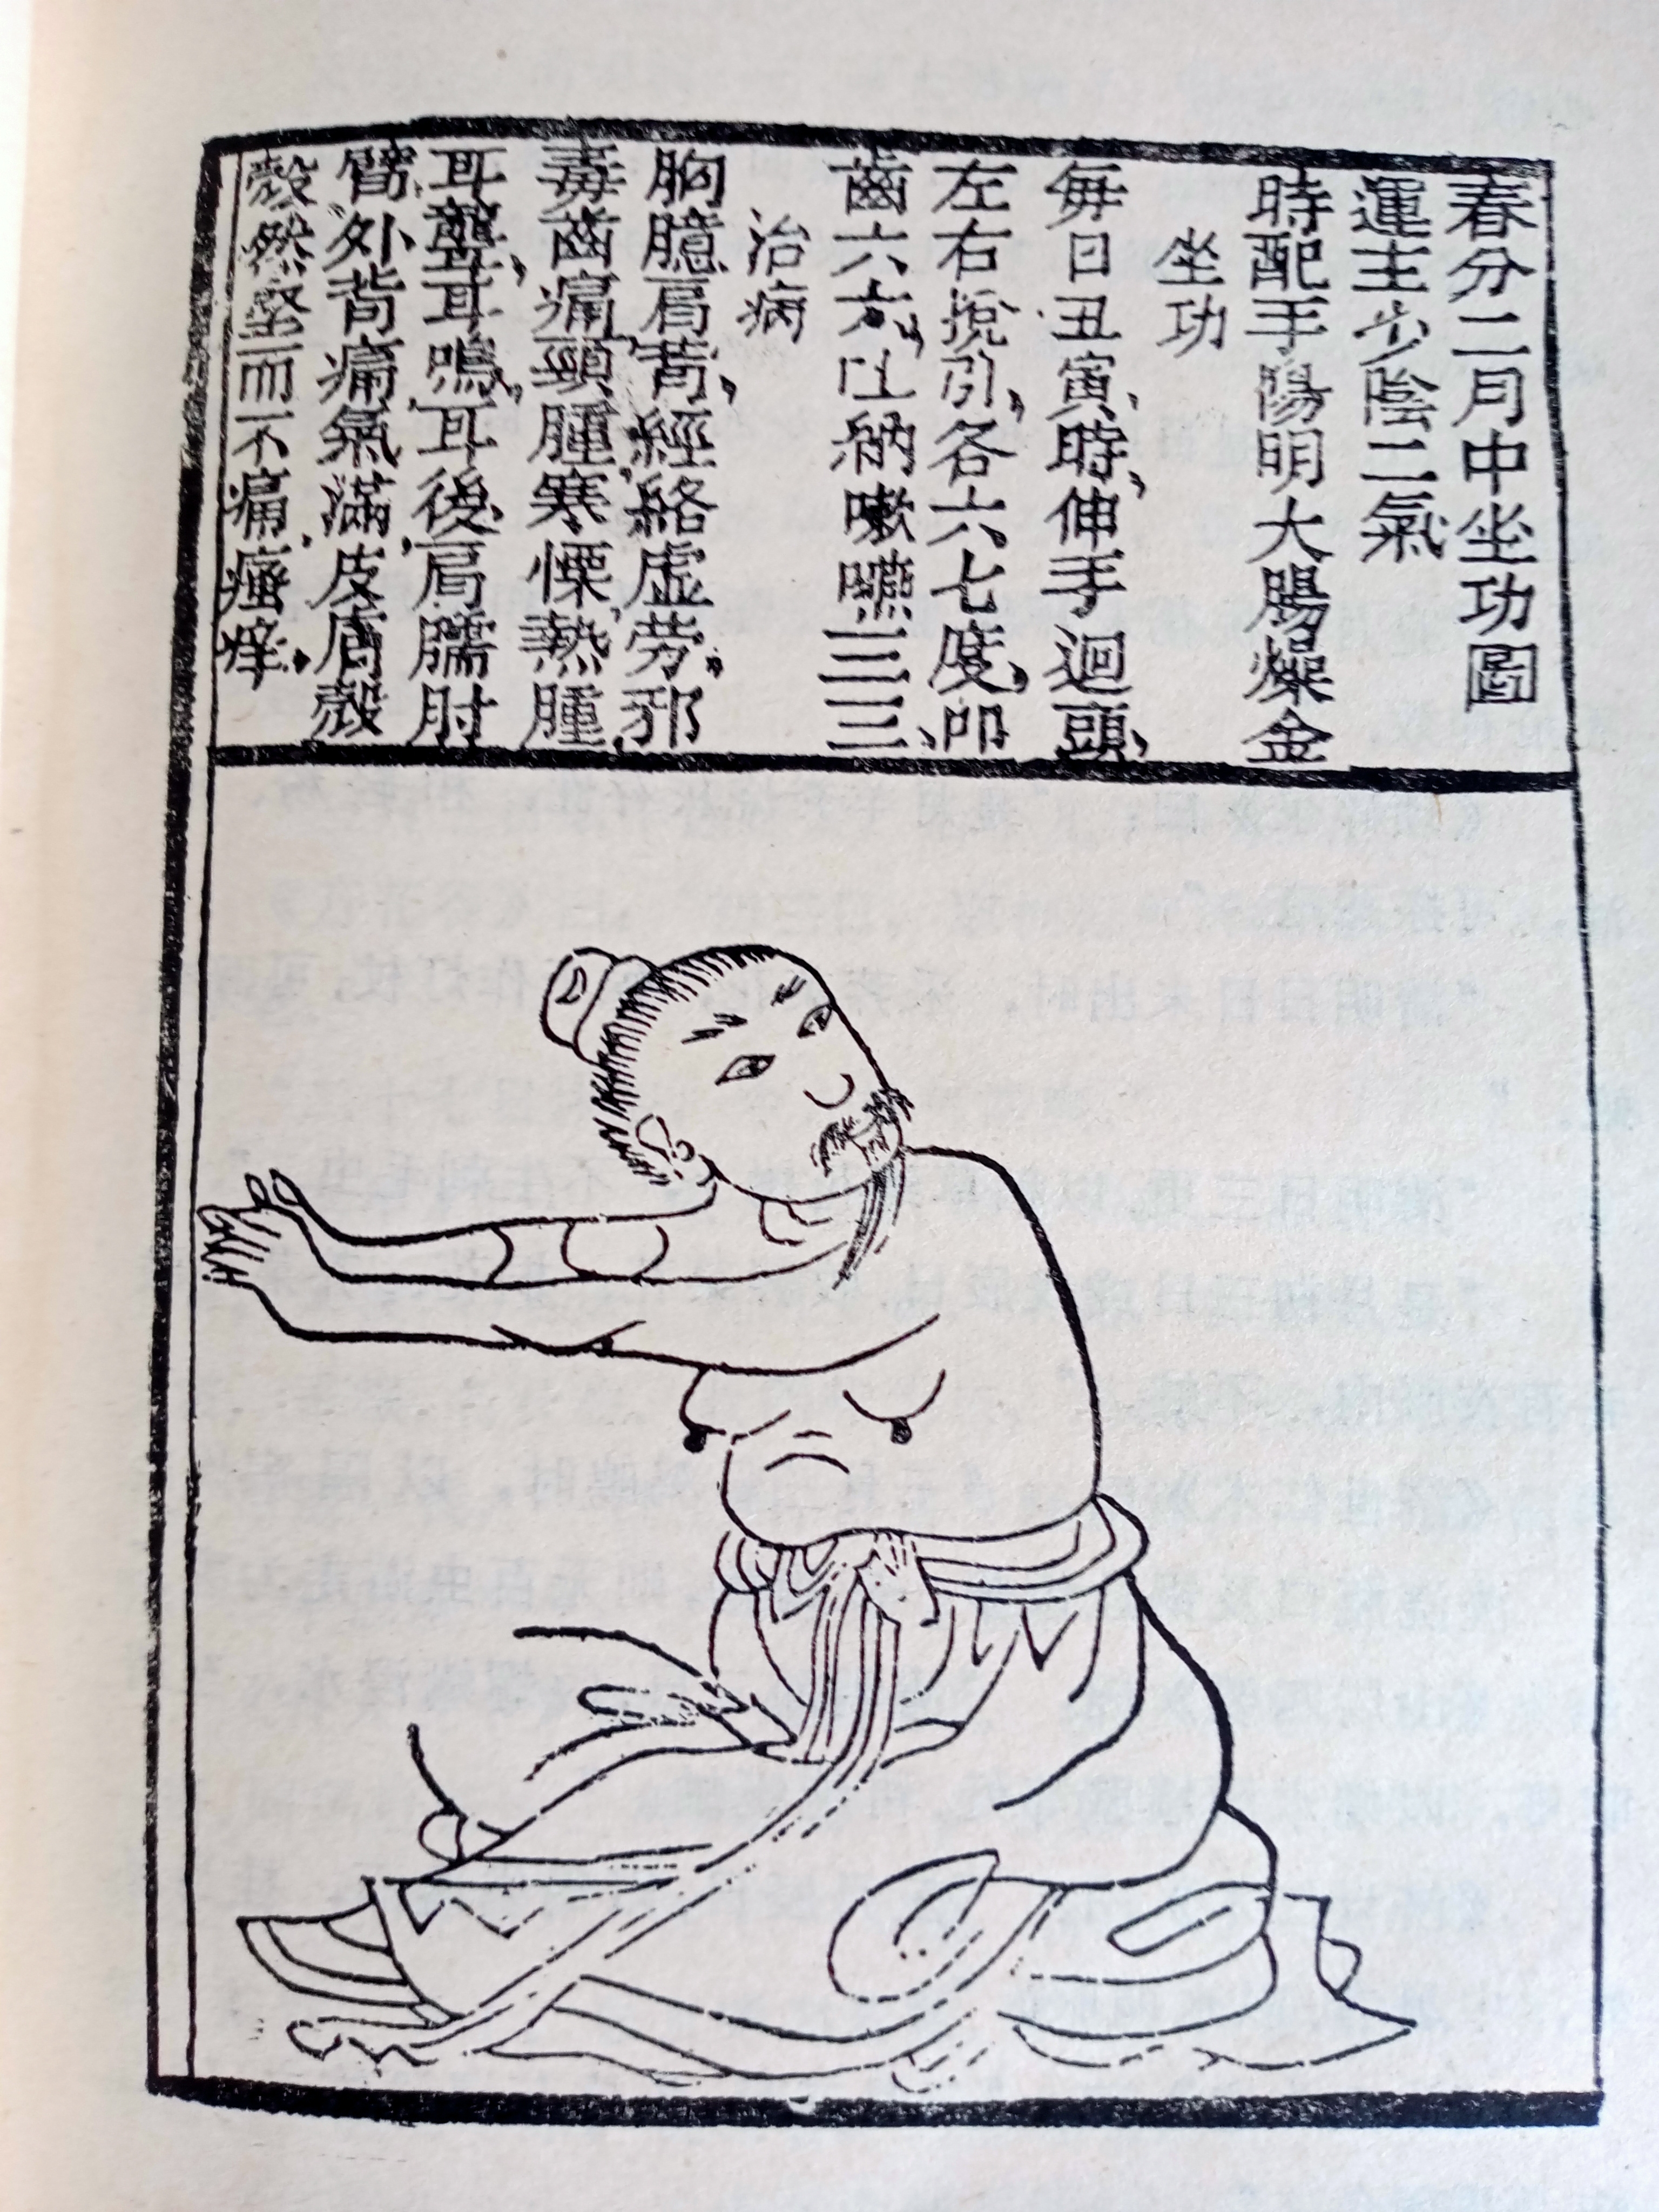 春分二月中坐功圖
運主少陰二氣
時配手陽明大腸燥金
坐功
每日丑寅時，伸手迴頭，
左右挽引，各六七度，叩
齒六六，吐納嗽嚥三三，
治病
胸臆肩背，經絡虛勞，邪
毒齒痛，頸腫，寒慄，熱腫，
耳聾，耳鳴，耳後肩臑肘
臂外背痛，氣滿，皮膚殼
殼然堅而不痛，瘙痒，